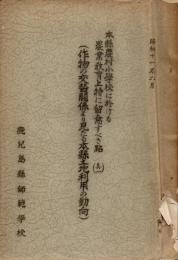 昭和十一年六月
本縣農村小學校に於ける
農業教育上特に留意すべき點
(其一)
(作物の分布關係より見たる本縣土地利用の動向)
鹿兒島縣師範學校